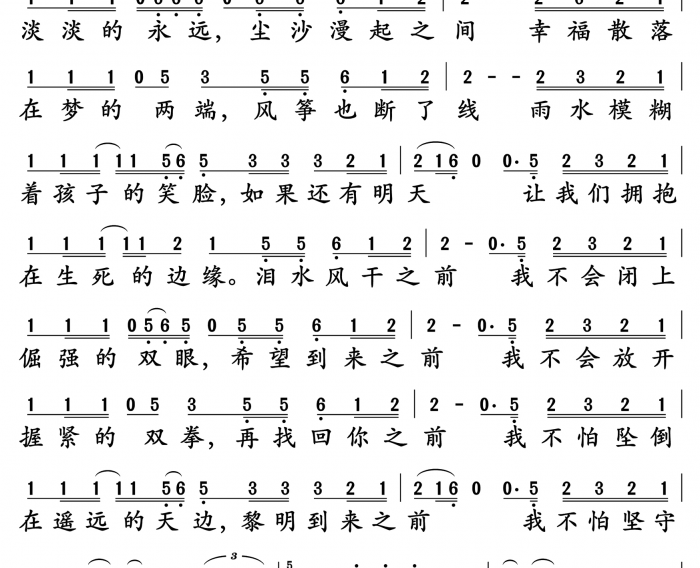 淡淡的永远，尘沙漫起之间 幸福散落
1 1 1 0 5 3 5 5 6 1 2 | 2 - - 2 3 2 1 |
在梦的 两端，风筝也断了线 雨水模糊
1 1 1 1 1 5 6 5 3 3 3 2 1 | 2 1 6 0 0· 5 2 3 2 1 |
着孩子的笑脸，如果还有明天 让我们拥抱
1 1 1 1 1 2 1 5 5 6 1 2 | 2 - 0· 5 2 3 2 1 |
在生死的边缘。泪水风干之前 我不会闭上
1 1 1 0 5 6 5 0 5 5 6 1 2 | 2 - 0· 5 2 3 2 1 |
倔强的 双眼，希望到来之前 我不会放开
1 1 1 0 5 3 5 5 6 1 2 | 2 - 0· 5 2 3 2 1 |
握紧的 双拳，再找回你之前 我不怕坠倒
1 1 1 1 1 5 6 5 3 3 3 2 1 | 2 1 6 0 0· 5 2 3 2 1 |
在遥远的天边，黎明到来之前 我不怕坚守
3